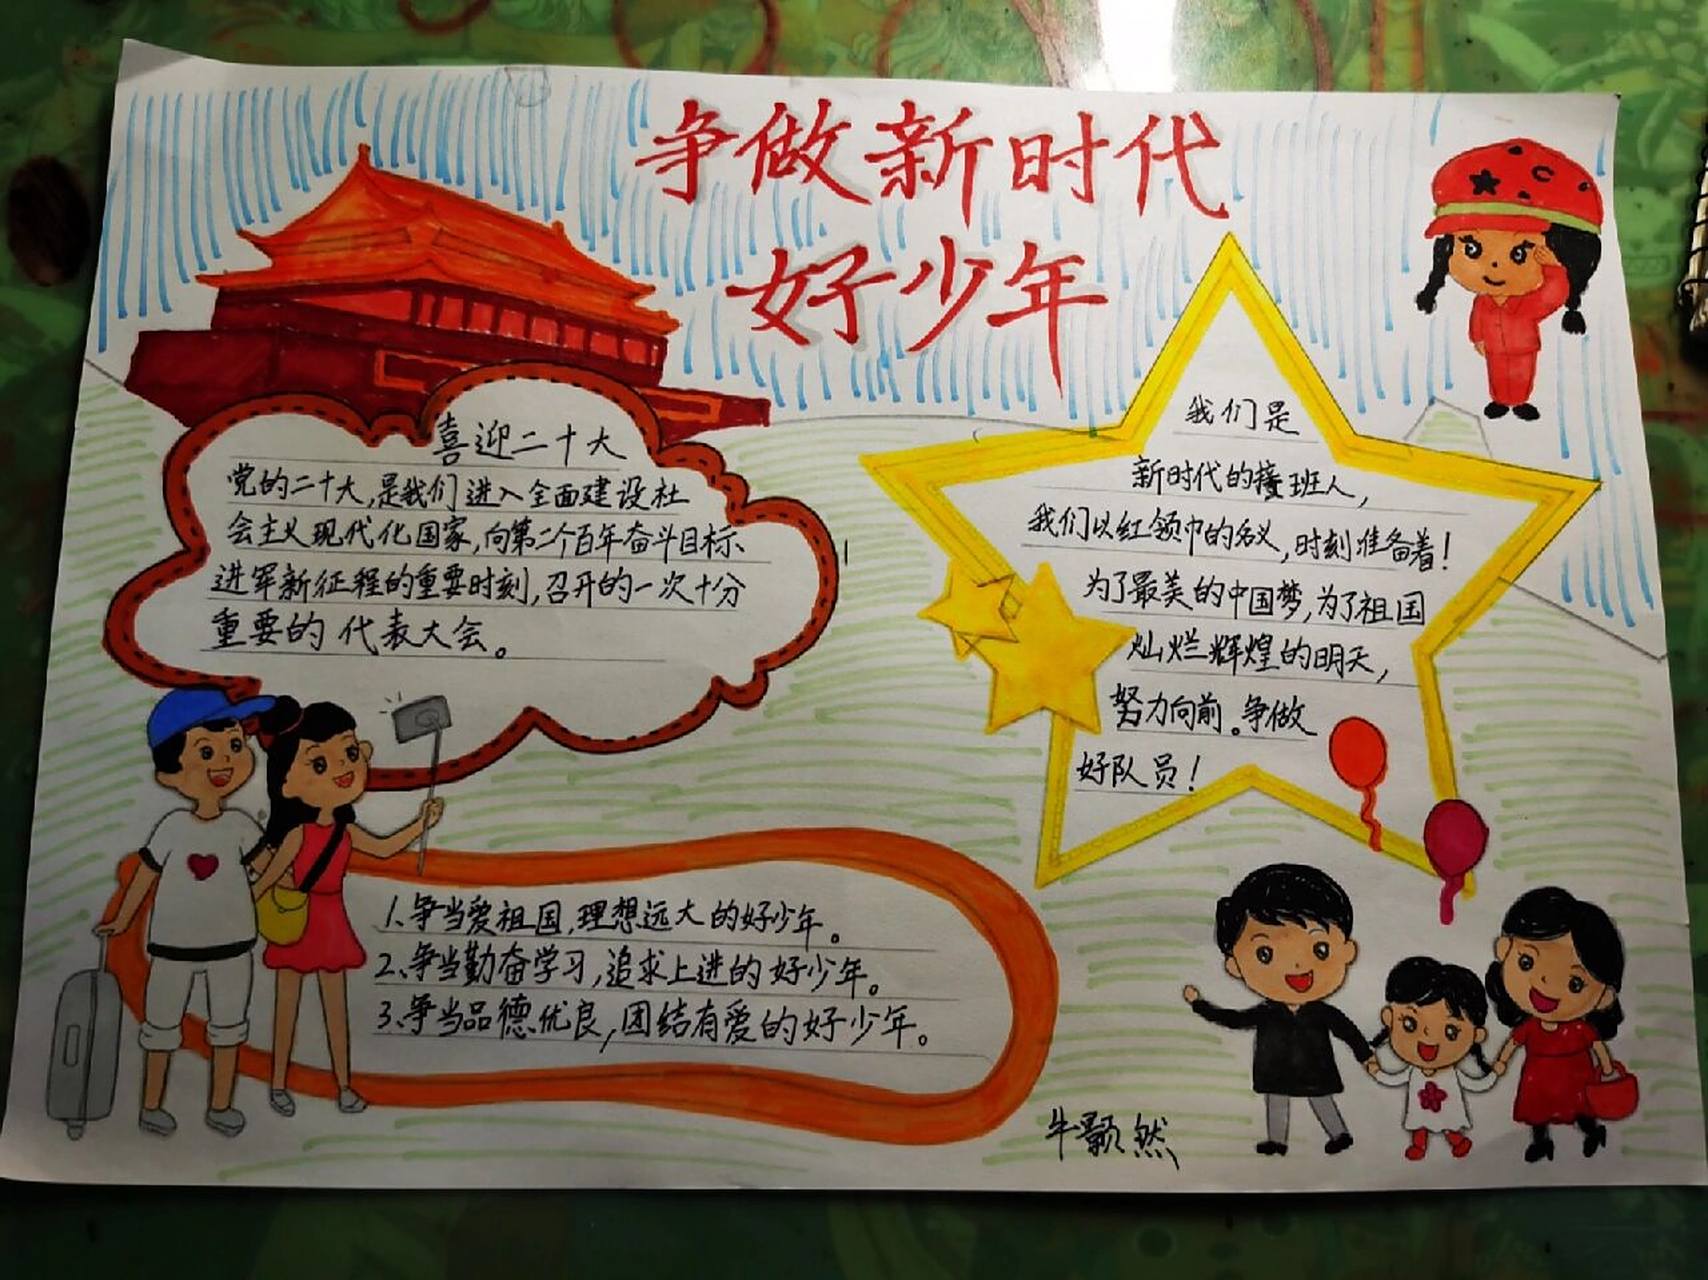 争做新时代
好少年
喜迎二十大
党的二十大,是我们进入全面建设社
会主义现代化国家,向第二个百年奋斗目标、
进军新征程的重要时刻,召开的一次十分
重要的代表大会。
我们是
新时代的接班人,
我们以红领巾的名义,时刻准备着!
为了最美的中国梦,为了祖国
灿烂辉煌的明天,
努力向前。争做
好队员!
1、争当爱祖国,理想远大的好少年。
2、争当勤奋学习,追求上进的好少年。
3、争当品德优良,团结有爱的好少年。
牛颢然